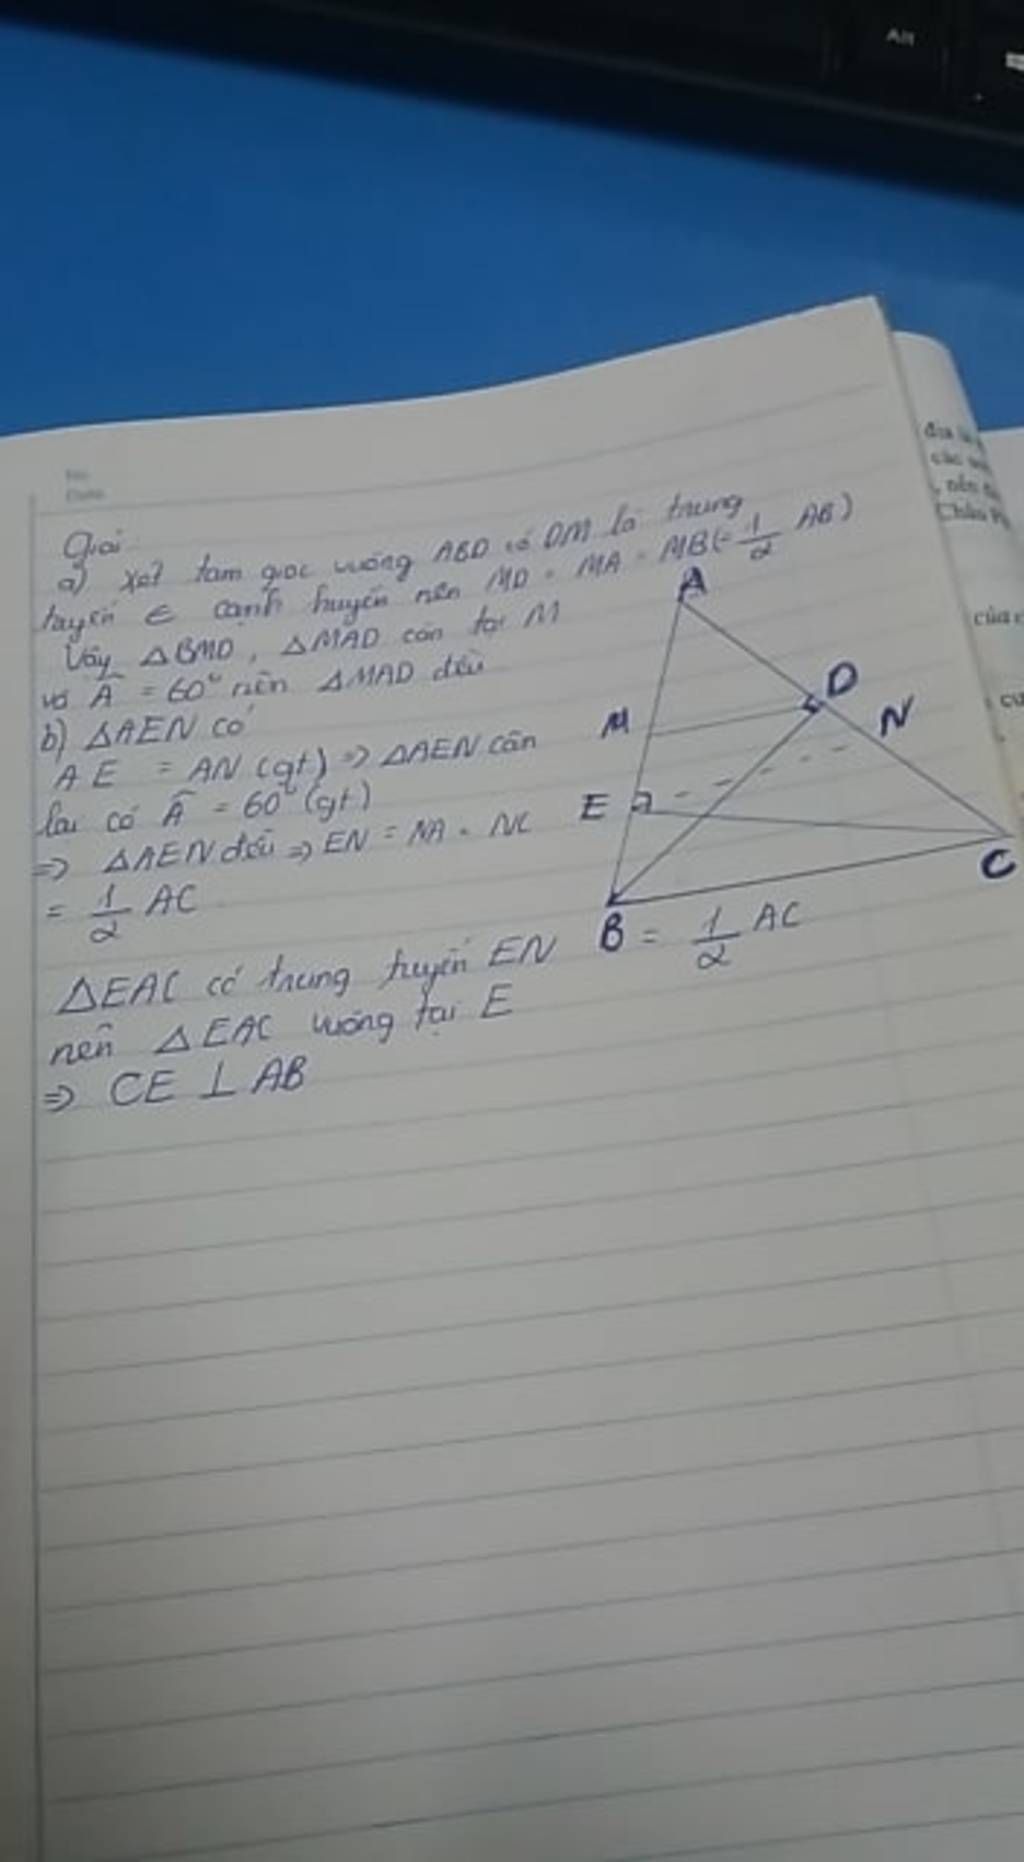 Alt
Giải
a) xét tam giác vuông ABD có DM là trung
tuyến ∈ cạnh huyền nên MD = MA = MB (= 1/2 AB)
Vậy △BMD, △MAD cân tại M
và Â = 60° nên △MAD đều
b) △AEN có
AE = AN (gt) => △AEN cân
lại có Â = 60° (gt)
=> △AEN đều => EN = NA = NC
= 1/2 AC
△EAC có trung tuyến EN = 1/2 AC
nên △EAC vuông tại E
=> CE ⊥ AB
A
D
M
N
E
C
B
No
Date
địa
các
, nên
Châu
của c